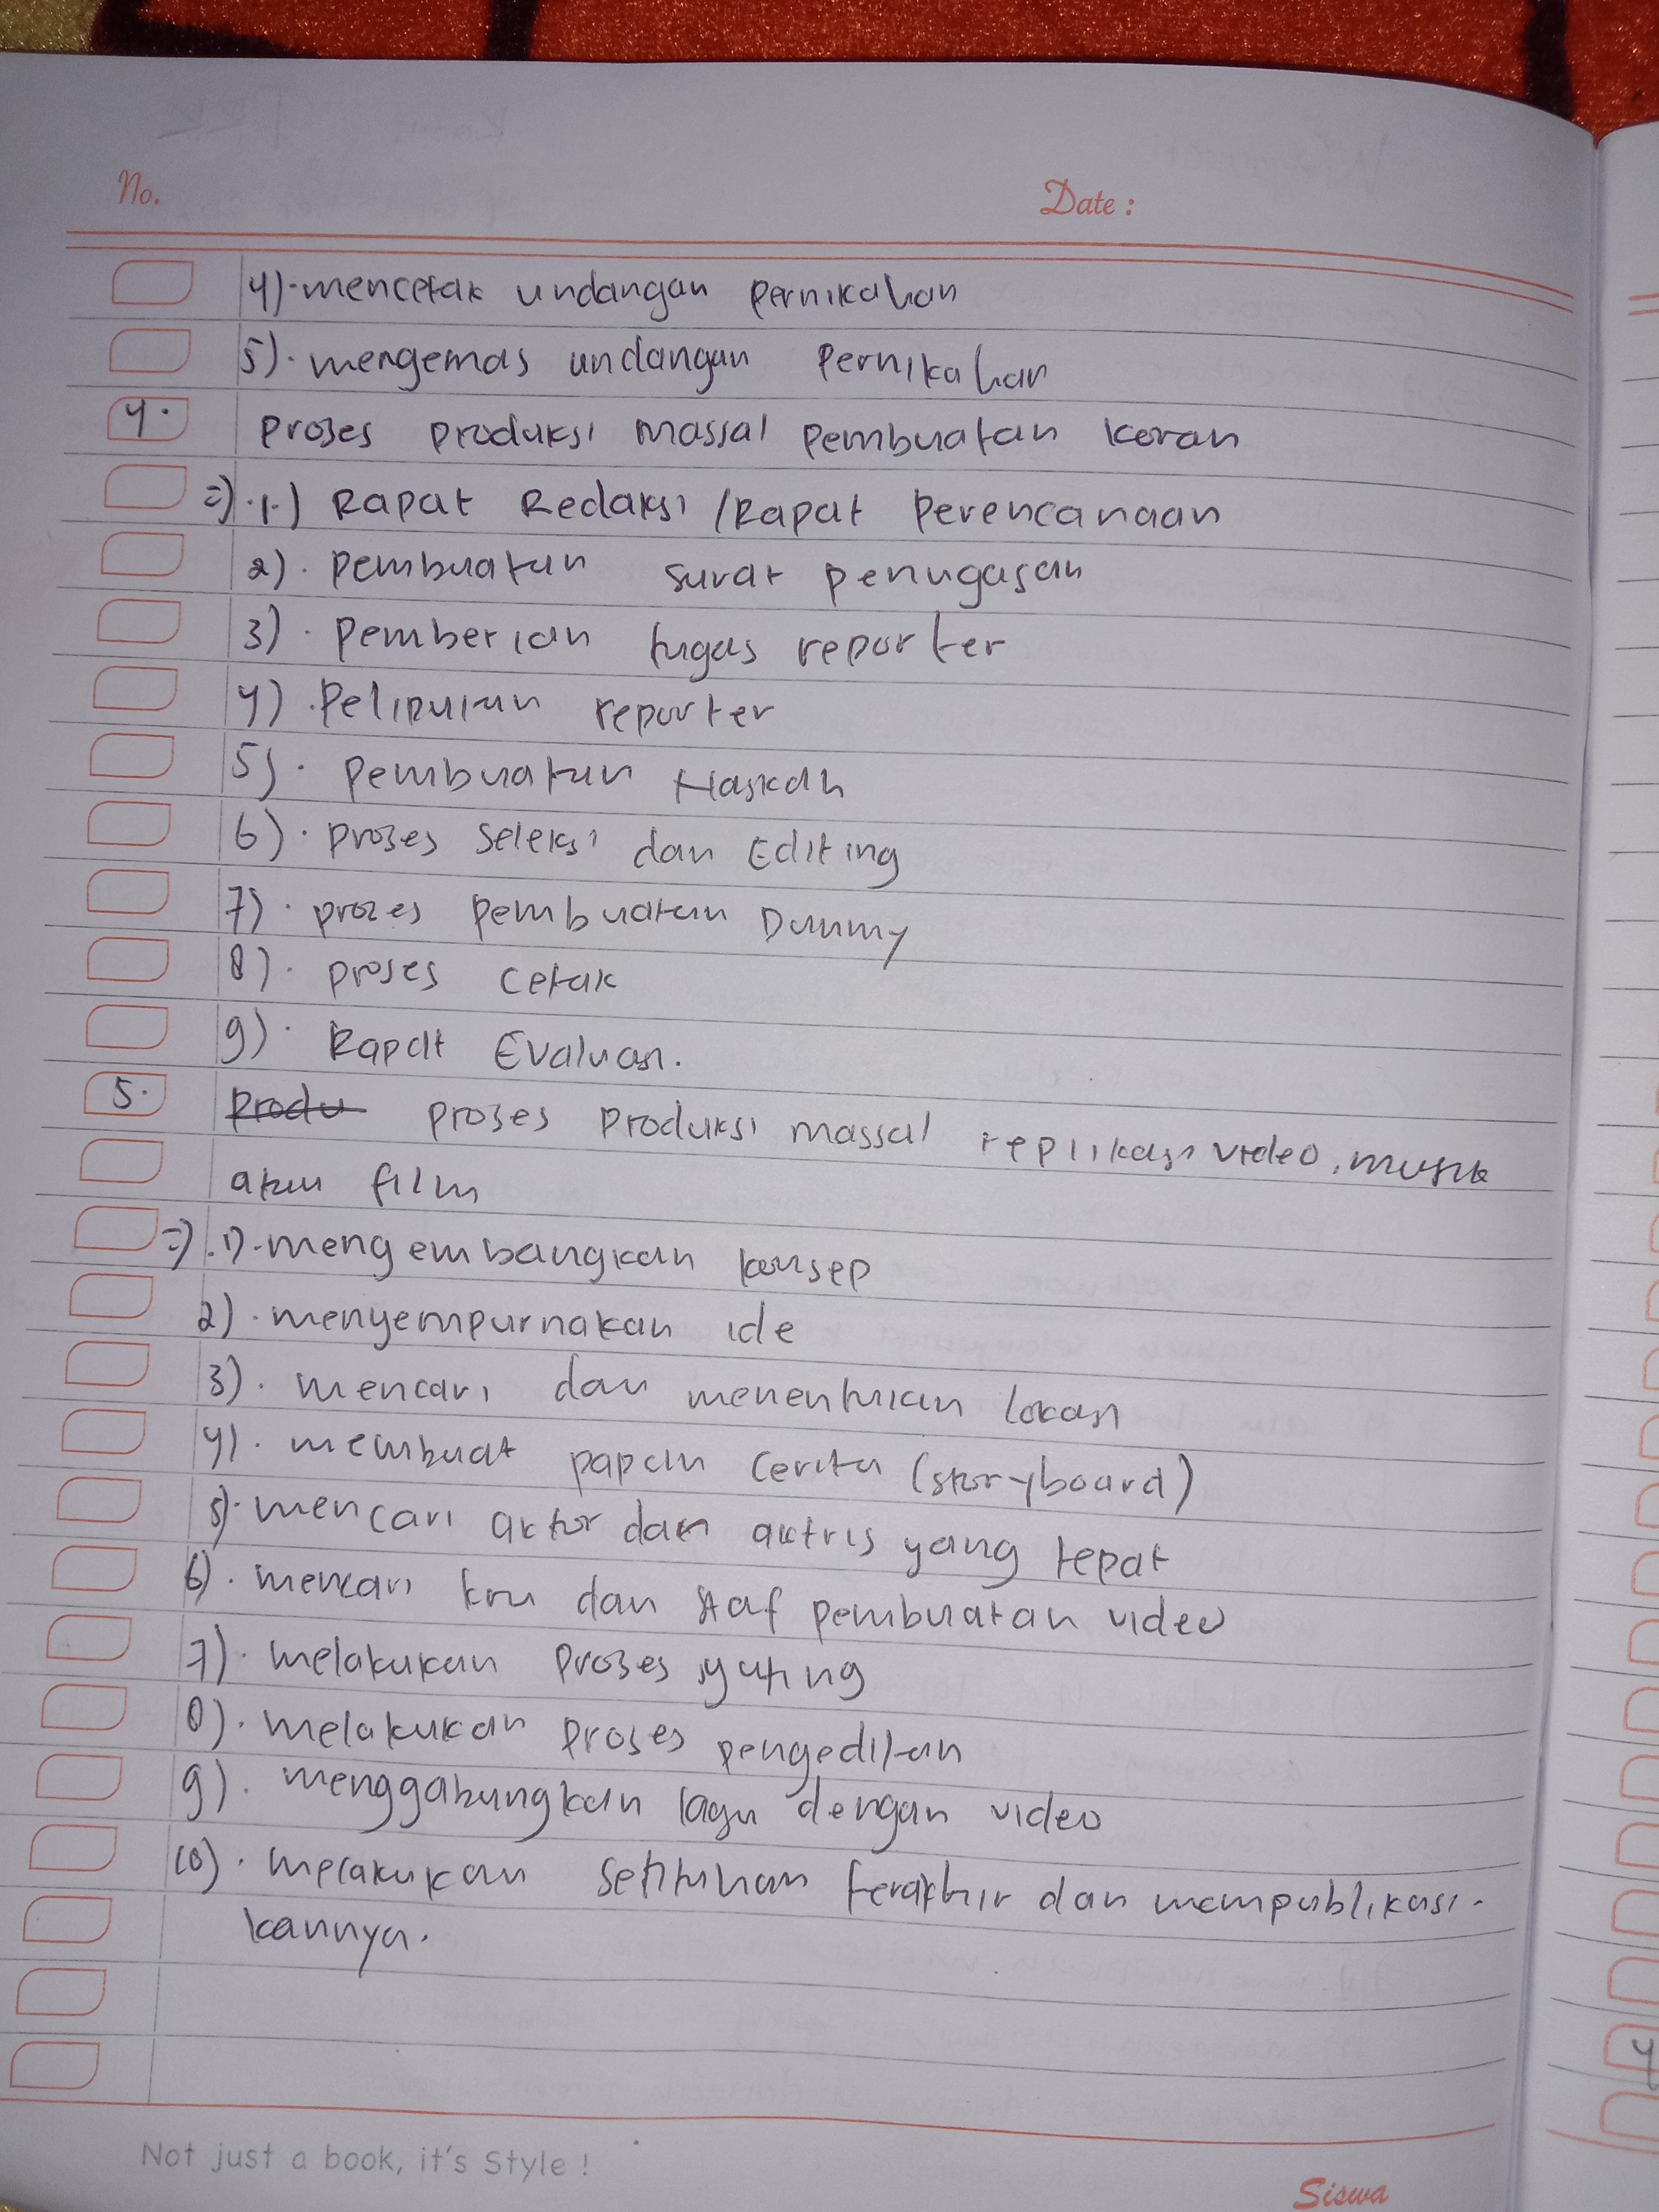 No.
Date :
4)·mencetak undangan pernikahan
5)· mengemas undangan Pernikahan
4. proses produksi massal pembuatan koran
=) ·1·) Rapat Redaksi /Rapat Perencanaan
2)· Pembuatan surat penugasan
3)· pemberian tugas reporter
4)·Peliputan reporter
5)· pembuatan Naskah
6)· proses seleksi dan Editing
7)· proses pembuatan Dummy
8)· proses cetak
9)· Rapat Evaluasi.
5. Produ proses produksi massal replikasi video, musik
atau film
=) ·1)·mengembangkan konsep
2)·menyempurnakan ide
3)· mencari dan menentukan lokasi
4)· membuat papan cerita (storyboard)
5)·mencari aktor dan aktris yang tepat
6)· mencari kru dan staf pembuatan video
7)· melakukan proses syuting
8)· melakukan proses pengeditan
9)· menggabungkan lagu dengan video
10)· melakukan terakhir dan mempublikasi-
kannya.
Not just a book, it's Style !
Siswa
4